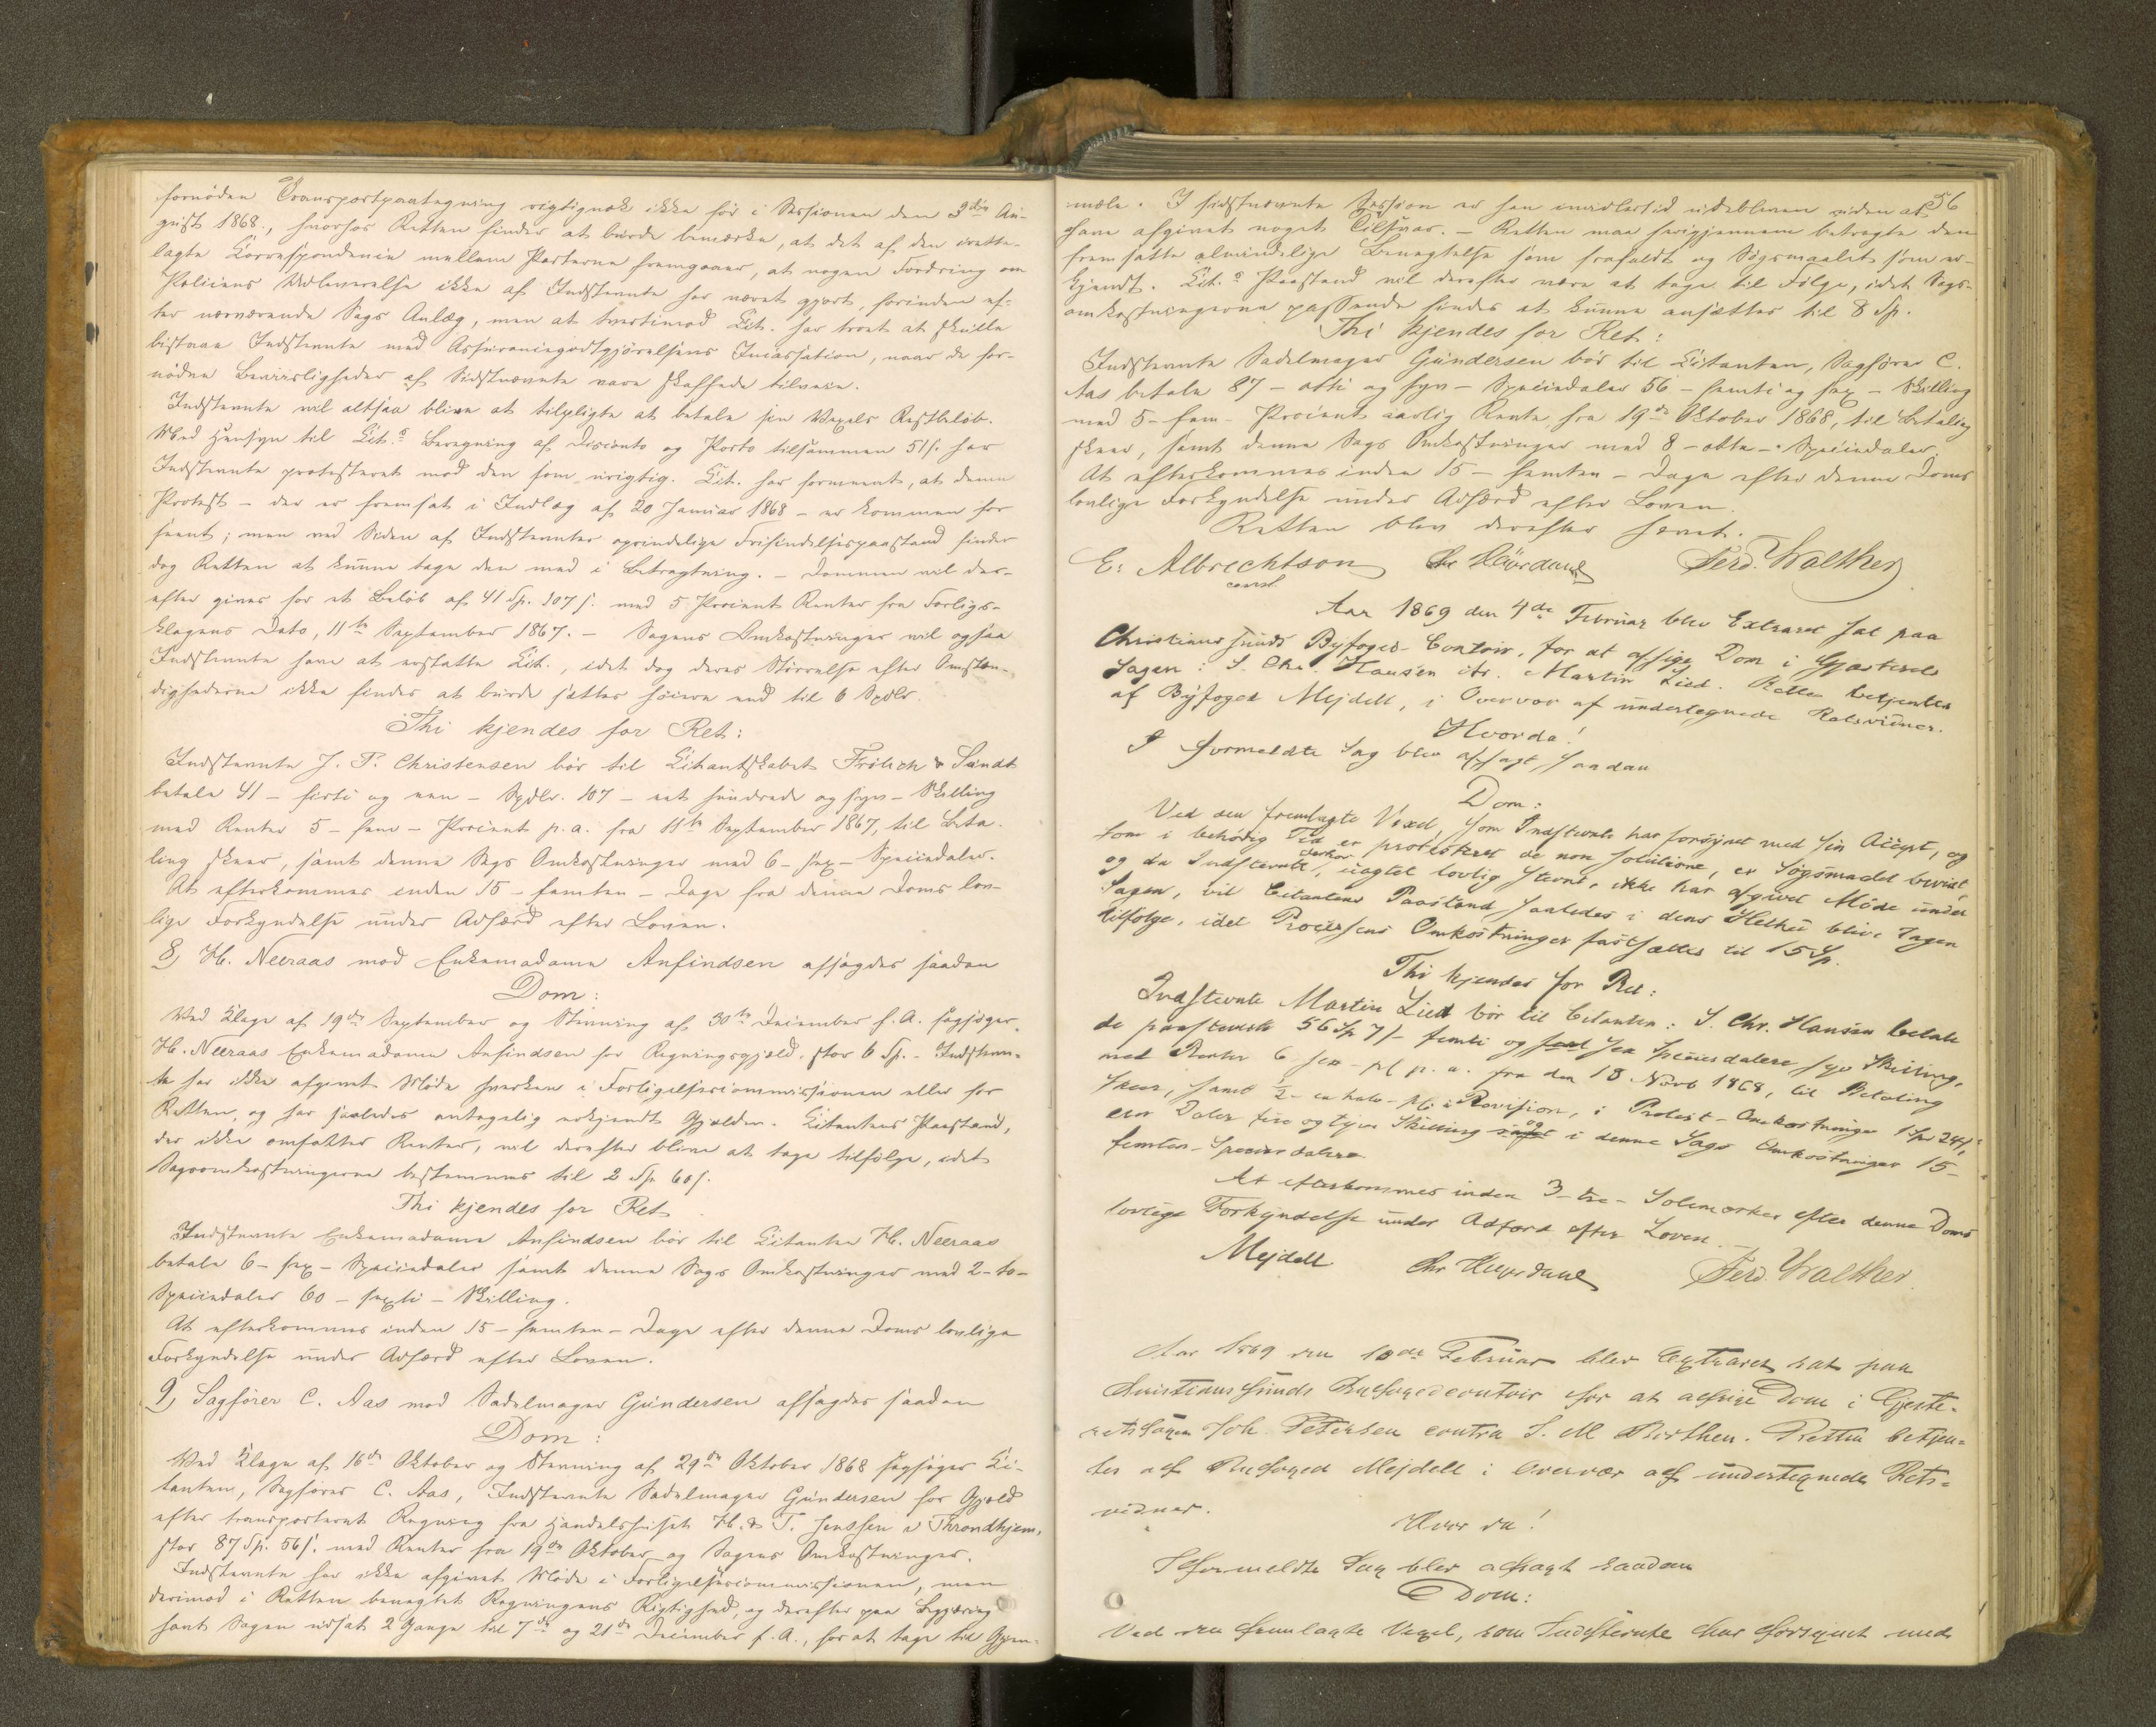 fornöden Transportpaategning rigtignok ikke før i Sessionen den 3die Au-
gust 1868., hvorhos Retten finder at burde bemærke, at det af den irette-
lagte Correspondence mellem Parterne fremgaaer, at nogen Fordring om
Policens Udleverelse ikke af Indstevnte har været gjort, forinden ef-
ter nærværende Sags Anlæg, men at tvertimod Cit. har troet at skulle
bistaae Indstevnte med Assurancegodtgjörelsens Incassation, naar de for-
nödne Beviisligheder af Sidstnævnte vare skaffede tilveie.
Indstevnte vil altsaa blive at tilpligte at betale sin Vexels Restbelöb.
Med Hensyn til Cit.s Beregning af Disconto og Porto tilsammen 51 s. har
Indstevnte protesteret mod den som urigtig. Cit. har formeent, at denne
Protest – der er fremsat i Indlæg af 20 Januar 1868 – er kommen for
seent; men ved Siden af Indstevntes oprindelige Frifindelsespaastand finder
dog Retten at kunne tage den med i Betragtning. – Dommen vil der-
efter gives for et Belöb af 41 Sp. 107 s. med 5 Procents Renter fra Forligs-
klagens Dato, 11te September 1867. – Sagens Omkostninger vil ogsaa
Indstevnte have at erstatte Cit., idet dog deres Störrelse efter Omstæn-
dighederne ikke findes at burde sættes höiere end til 6 Spdlr.
Thi kjendes for Ret:
Indstevnte J. P. Christensen bör til Citantskabet Frölich & Sandt
betale 41 – firti og een – Spdlr. 107 – eet hundrede og syv – Skilling
med Renter 5 – fem – Procent p. a. fra 11te September 1867, til Beta-
ling skeer, samt denne Sags Omkostninger med 6 – sex – Speciedaler.
At efterkommes inden 15 – femten – Dage fra denne Doms lov-
lige Forkyndelse under Adfærd efter Loven.
8, H. Neeraas mod Enkemadame Anfindsen afsagdes saadan
Dom:
Ved Klage af 19de September og Stevning af 30te December f. A. sagsöger
H. Neeraas Enkemadame Anfindsen for Regningsgjæld, stor 6 Sp. – Indstevn-
te har ikke afgivet Möde hverken i Forligelsescommissionen eller for
Retten, og har saaledes antagelig erkjendt Gjælden. Citantens Paastand,
der ikke omfatter Renter, vil derefter blive at tage tilfölge, idet
Sagsomkostningerne bestemmes til 2 Sp. 60 s.
Thi kjendes for Ret
Indstevnte Enkemadame Anfindsen bör til Citanten H. Neeraas
betale 6 – sex – Speciedaler samt denne Sags Omkostninger med 2 – to –
Speciedaler 60 – sexti – Skilling.
At efterkommes inden 15 – femten – Dage efter denne Doms lovlige
Forkyndelse under Adfærd efter Loven.
9, Sagförer C. Aas mod Sadelmager Gundersen afsagdes saadan
Dom:
Ved Klage af 16de Oktober og Stevning af 29de Oktober 1868 sagsöger Ci-
tanten, Sagförer C. Aas, Indstevnte Sadelmager Gundersen for Gjæld
efter transporteret Regning fra Handelshuset H. & T. Jenssen i Throndhjem,
stor 87 Sp. 56 s. med Renter fra 19de Oktober og Sagens Omkostninger.
Indstevnte har ikke afgivet Möde i Forligelsescommissionen, men
derimod i Retten benegtet Regningens Rigtighed, og derefter paa Begjæring
havt Sagen udsat 2 Gange til 7de og 21de December f. A., for at tage til Gjen-
56
mæle. I sidstnævnte Session er han imidlertid udebleven uden at
have afgivet noget Tilsvar. – Retten maa herigjennem betragte den
fremsatte almindelige Benegtelse som frafaldt og Søgsmaalet som er-
kjendt. Cit.s Paastand vil derefter være at tage til Fölge, idet Sags-
omkostningerne passende findes at kunne ansættes til 8 Sp.
Thi kjendes for Ret:
Indstevnte Sadelmager Gundersen bör til Citanten, Sagförer C.
Aas betale 87 – otti og syv – Speciedaler 56 – femti og sex – Skilling
med 5 – fem – Procent aarlig Rente fra 19de Oktober 1868, til Betaling
skeer, samt denne Sags Omkostninger med 8 – otte – Speciedaler.
At efterkommes inden 15 – femten – Dage efter denne Doms
lovlige Forkyndelse under Adfærd efter Loven.
Retten blev derefter hævet.
E. Albrechtson Chr Ferd. Walther
const.
Aar 1869 den 4de Februar blev Extraret sat paa
Christianssunds Byfoged-Contoir, for at afsige Dom i Gjæsterets
Sagen: S. Chr. Hansen ctr. Martin Lied. Retten betjentes
af Byfoged Mejdell, i Overvær af undertegnede Retsvidner.
Hvorda!
I formeldte Sag blev afsagt saadan
Dom:
Ved den fremlagte Vexel, som Indstevnte har forsynet med sin Accept, og
som i behørig Tid er protesteret de non solutione, er Søgsmaalet beviist,
og da Indstevnte, uagtet lovlig stevnt, ikke har afgivet Møde under
Sagen, vil Citantens Paastand saaledes i dens Helhed blive tagen
tilfølge, idet Processens Omkostninger fastsættes til 15 Sp.
Thi kjendes for Ret:
Indstevnte Martin Lied bör til Citanten: S. Chr. Hansen betale
de paastevnte 56 Sp 7 s – femti og sex Speciesdalere syv Skilling,
med Renter 6 – sex – pCt p. a. fra den 18 Novb 1868, til Betaling
skeer, samt ½ – en halv – pCt i Provision, i Protest-Omkostninger 1 Sp 24 s,
een Daler fire og tyve Skilling og i denne Sags Omkostninger 15 –
femten – Speciesdalere.
At efterkommes inden 3 – tre – Solemærker efter denne Doms
lovlige Forkyndelse under Adfærd efter Loven.
Mejdell Chr Ferd. Walther
Aar 1869 den 10de Februar blev Extraret sat paa
Christianssunds Byfogedcontoir for at afsige Dom i Gjeste-
retssagen Joh. Petersen contra S. M. Betten betjen-
tes af Byfoged Mejdell i Overvær af undertegnede Rets-
vidner.
Hvor da!
I formeldte Sag blev afsagt saadan
Dom:
Ved den fremlagte Vexel, som Indstevnte har forsynet med